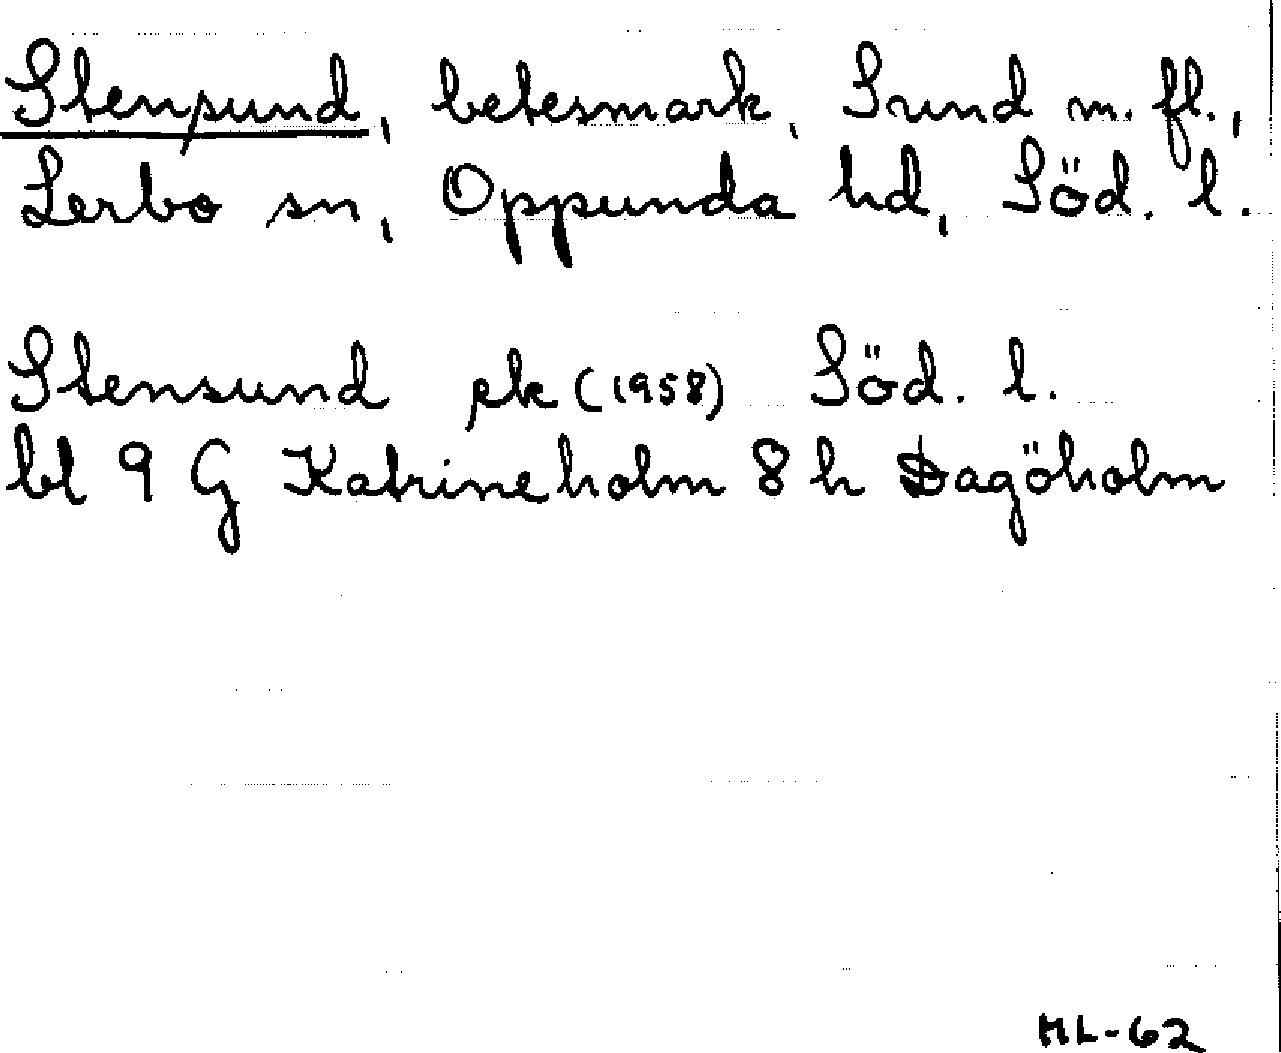 Stensund, betesmark, Sund m. fl.,
Lerbo sn, Oppunda hd, Söd. l.
Stensund ek (1958) Söd. l.
bl 9 G Katrineholm 8 h Dagöholm
ML-62